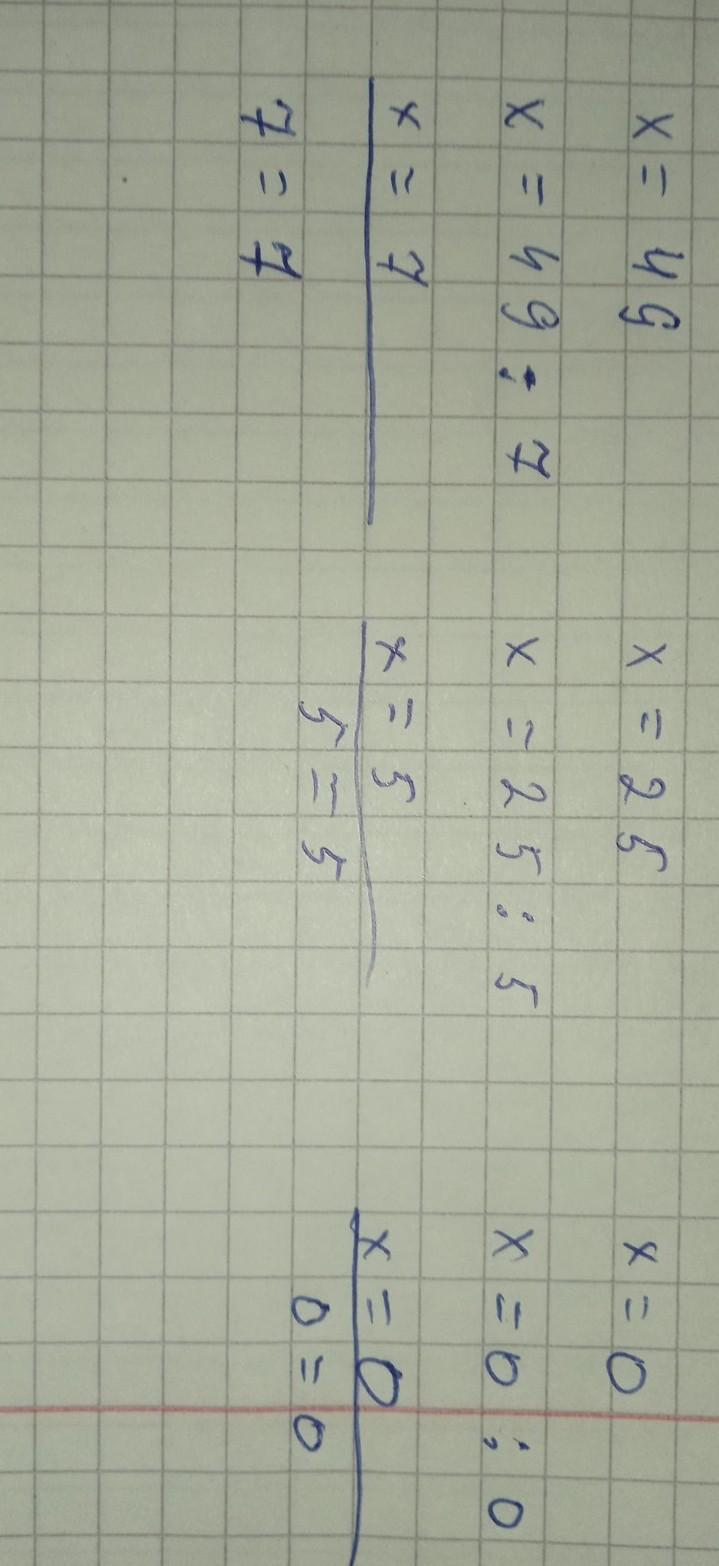 x = 49 x = 25 x = 0
x = 49 : 7 x = 25 : 5 x = 0 : 0
x = 7 x = 5 x = 0
7 = 7 5 = 5 0 = 0